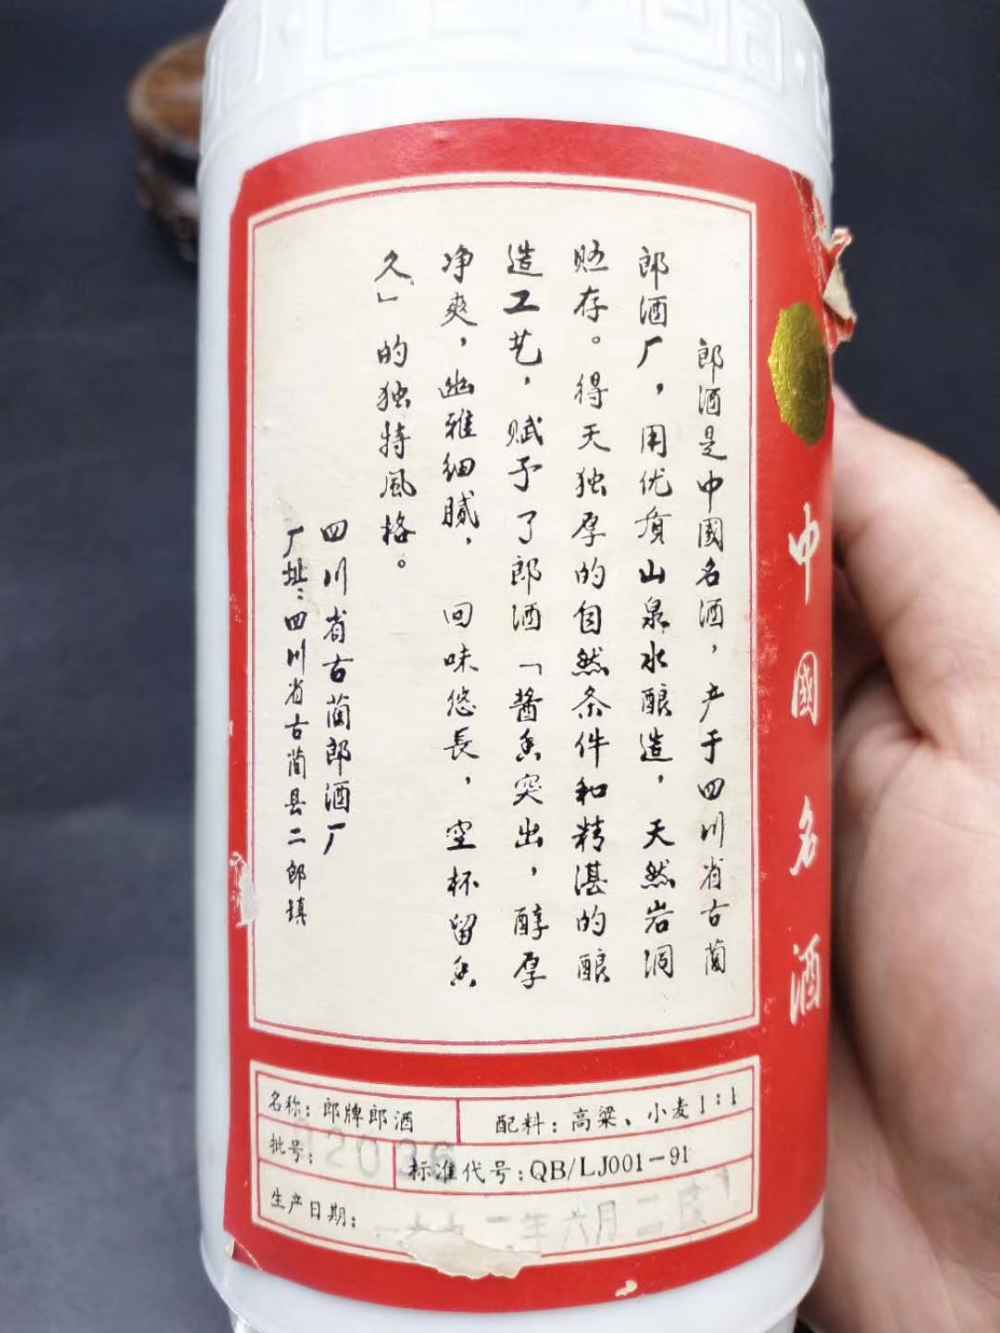 郎酒是中國名酒，产于四川省古蔺
郎酒厂，用优质山泉水酿造，天然岩洞
贮存。得天独厚的自然条件和精湛的酿
造工艺，赋予了郎酒「酱香突出，醇厚
净爽，幽雅细腻，回味悠長，空杯留香
久」的独特風格。
四川省古蔺郎酒厂
厂址：四川省古蔺县二郎镇
中國名酒
名称：郎牌郎酒
配料：高粱、小麦1:1
批号：
标准代号：QB/LJ001-91
生产日期：
二年六月二